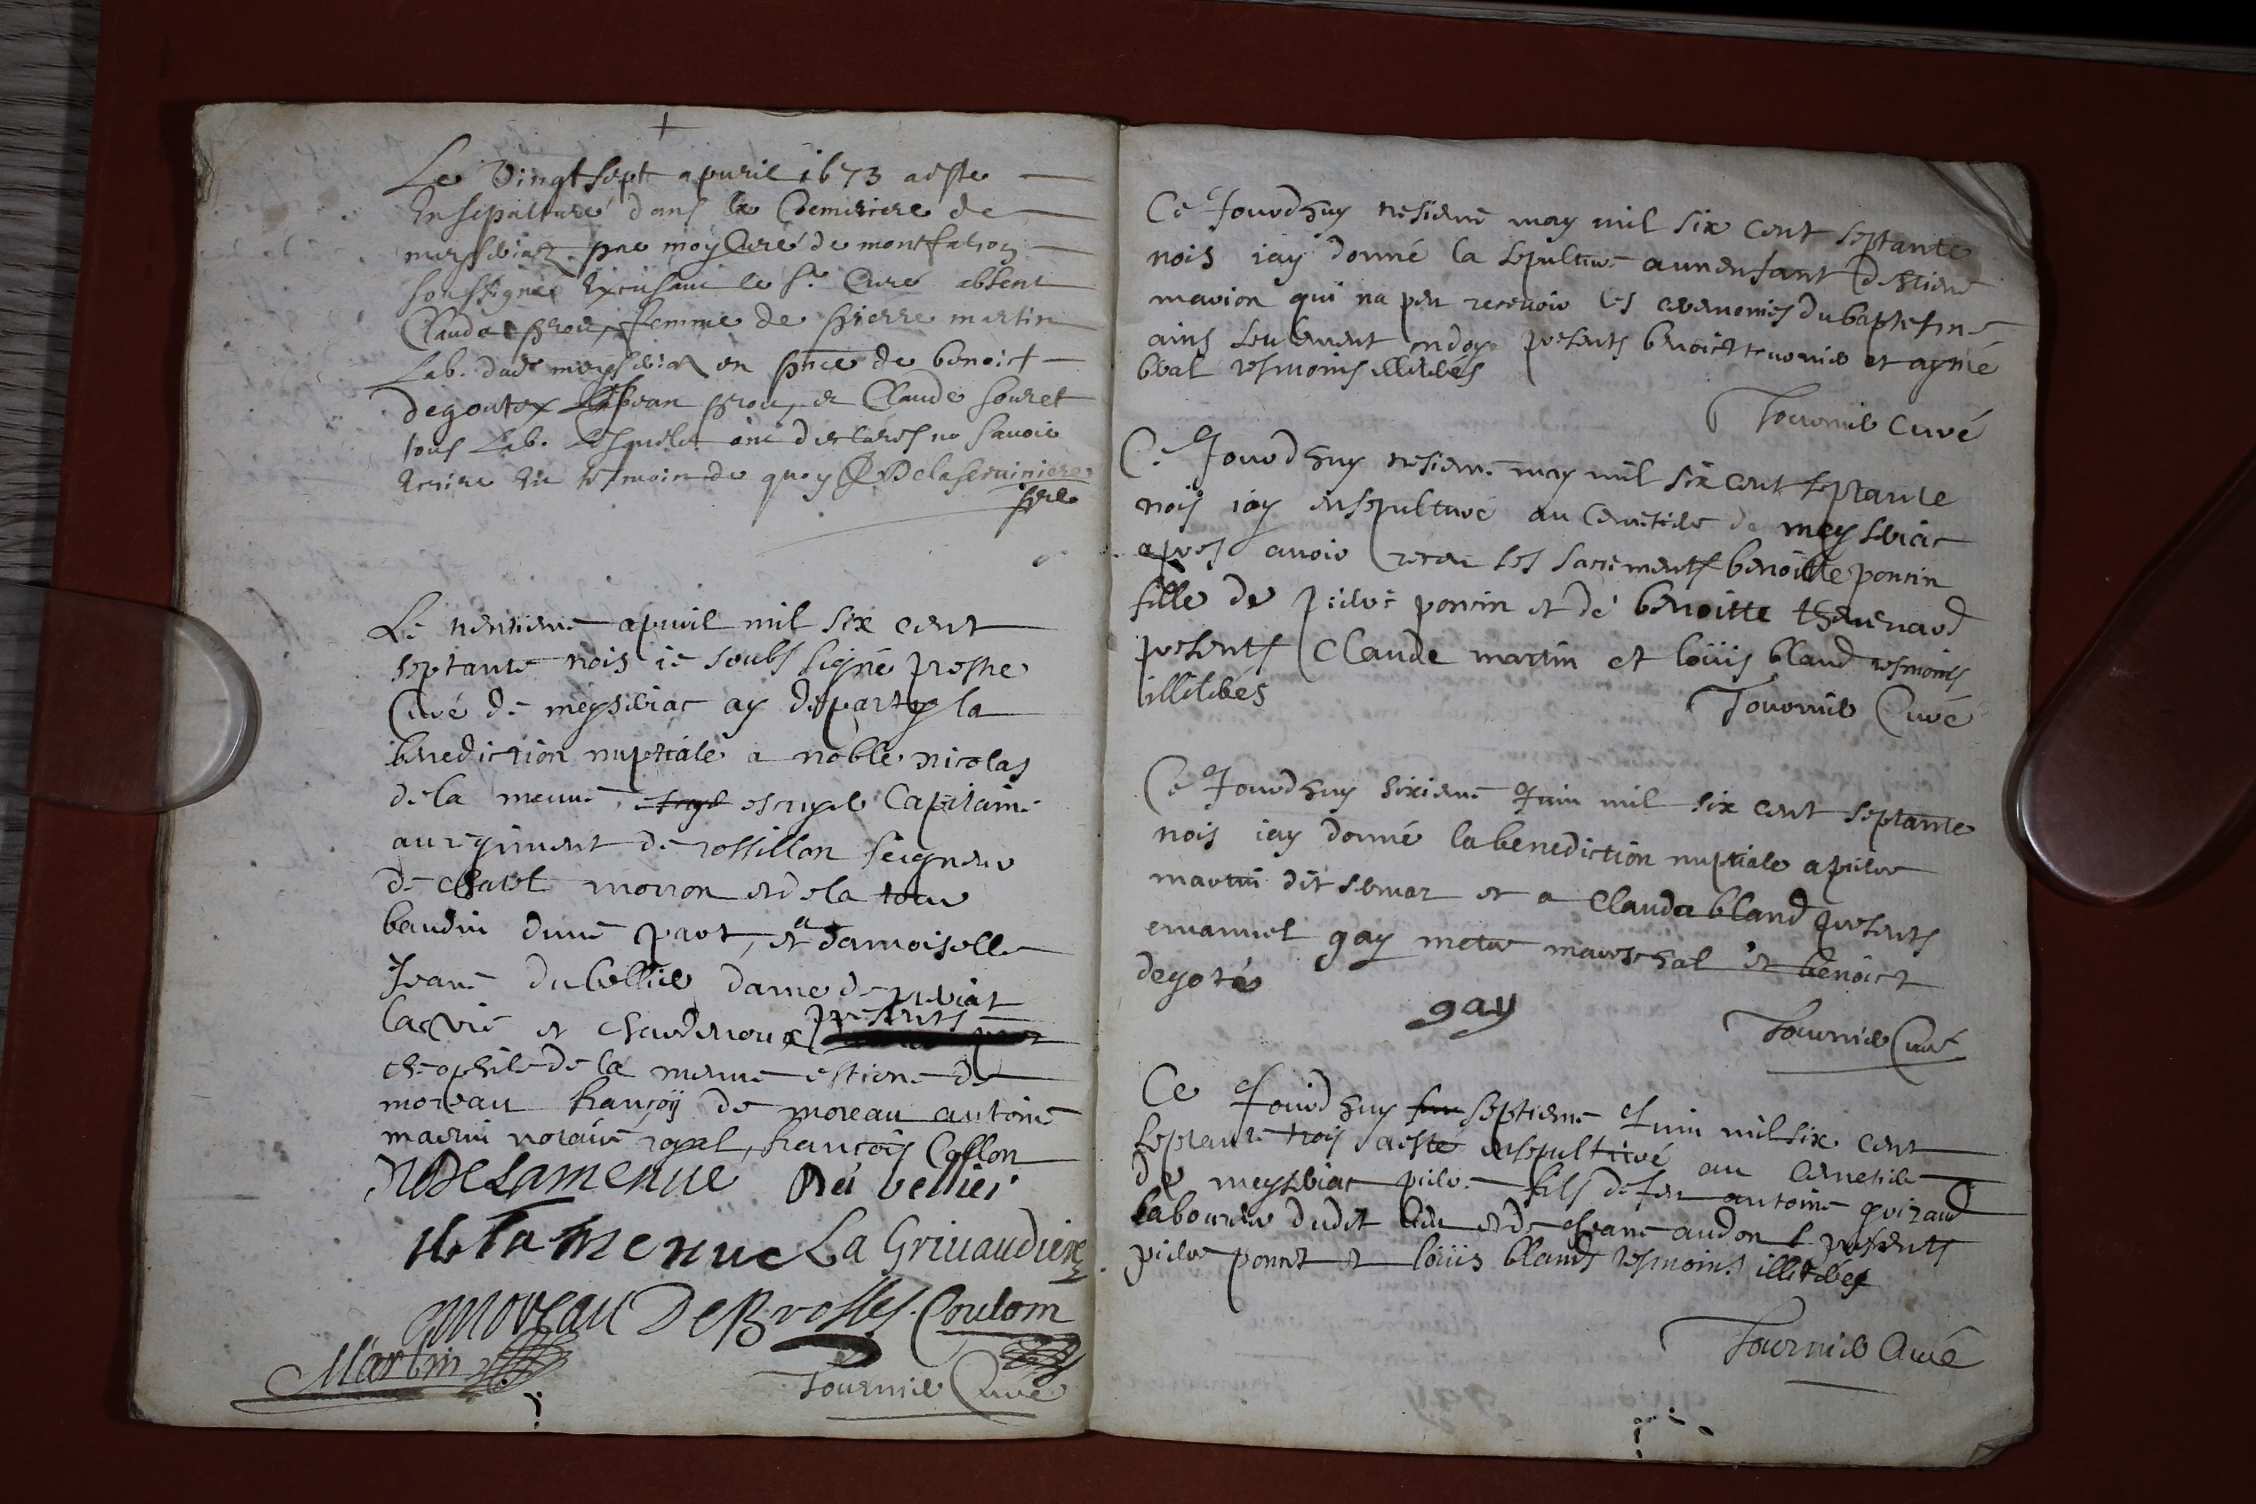 Le Vingt sept apvril 1673 a este
Ensepulturé dans le Cemetiere de
meysseriaz par moy Curé de montfalcon
soussigné Excusant le Sr. Curé absent
Claudaz femme de pierre martin
Lab. dudt meysseriaz en pnce de benoict
degoutex et Claude souret
tous Lab. Lesquels ont declarés ne savoir
Escrire En tesmoin de quoy Delaserviniere
pbre
Le trentieme apvril mil six cent
septante trois ie soubs signé prestre
Curé de meyseriac ay departy la
benediction nuptiale a noble nicolas
de la menue, escuyer Capitaine
au regiment de rossillon seigneur
de chatel morron et de la tour
baudin dune part, et a damoiselle
Jeane du bellier dame de
la et presents
theophile de la menue estiene de
moreau françoy de moreau antoine
martin notaire royal, françois Collon
N De Lamenue Du bellier
La menue La Grivaudiere
moreau De Brosses. Coulom
Martin
Tournier Curé
Ce Jourdhuy tresieme may mil six cent septante
trois iay donné la sepulture a un enfant destiene
marion qui na peu recevoir les ceremonies du baptesme
ains seulement ondoyé presents benoict tournier et aymé
bral tesmoins illiterés
Tournier Curé
Ce Jourdhuy tresieme may mil six cent septante
trois iay ensepulturé au Cemetiere de meyseriac
apres avoir receu les sacrements benoitte poncin
fille de pierre poncin et de benoitte thevenard
presents Claude martin et loüis bland tesmoins
illiterés
Tournier Curé
Ce Jourdhuy sixieme Juin mil six cent septante
trois iay donné la benediction nuptiale a pierre
martin dit et a Claudaz bland presents
emanuel gay metre mareschal et benoict
degoté
gay
Tournier Curé
Ce Jourdhuy septieme Juin mil six cent
septante trois a esté ensepulturé au Cemetiere
de meyseriac pierre fils de feu antoine
laboureur dudit lieu et de Jeane audon presents
pierre et loüis bland tesmoins illiterés
Tournier Curé